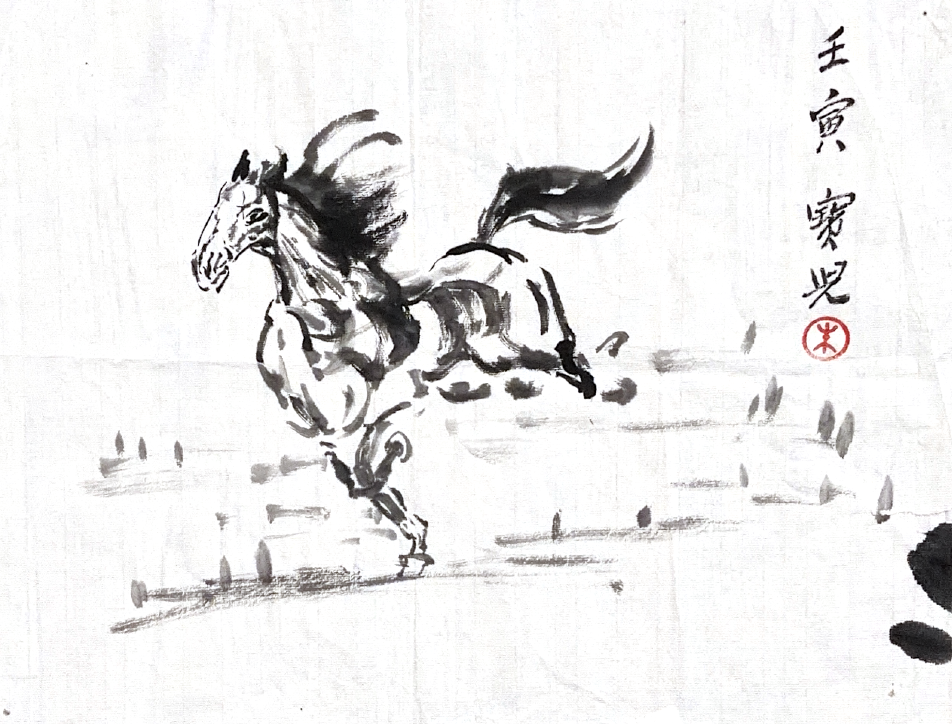 壬寅 寶兒
木